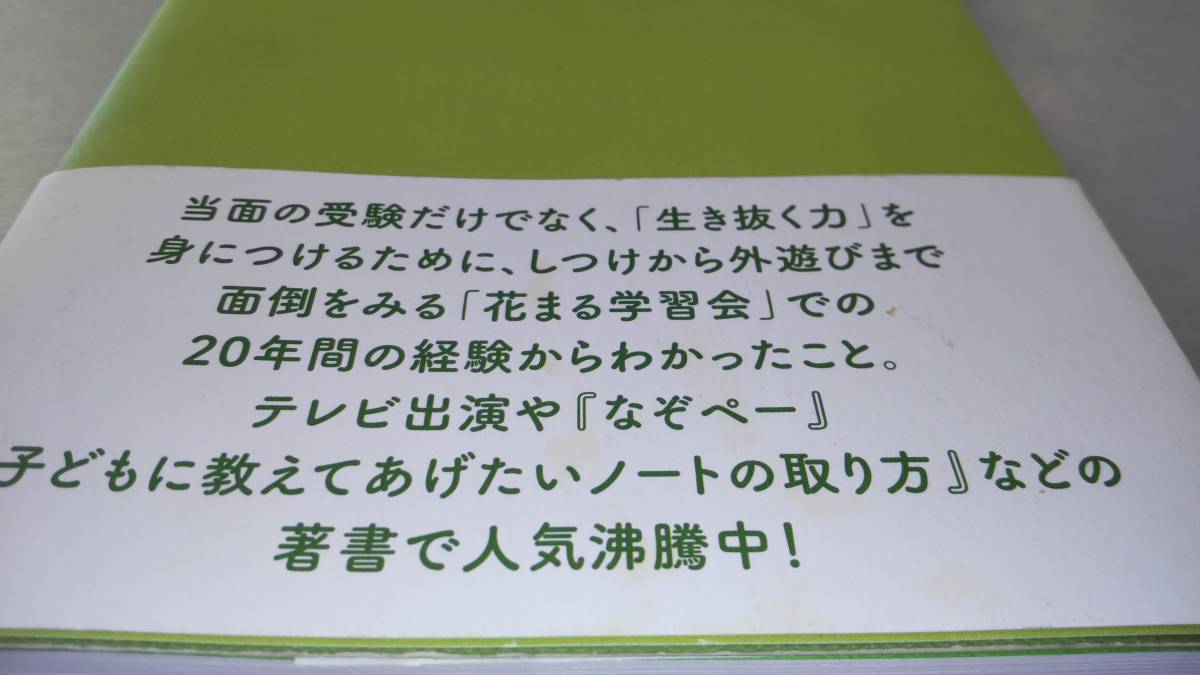 当面の受験だけでなく、「生き抜く力」を
身につけるために、しつけから外遊びまで
面倒をみる「花まる学習会」での
20年間の経験からわかったこと。
テレビ出演や『なぞペー』
子どもに教えてあげたいノートの取り方』などの
著書で人気沸騰中!